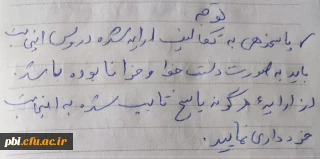 توجه
پاسخدهی به تکالیف ارایه شده دروس اینجانب
باید به صورت دست خط و خوانا بوده باشد.
از ارایه هرگونه پاسخ تایپ شده به اینجانب
خودداری نمایید.
pbi.cfu.ac.ir